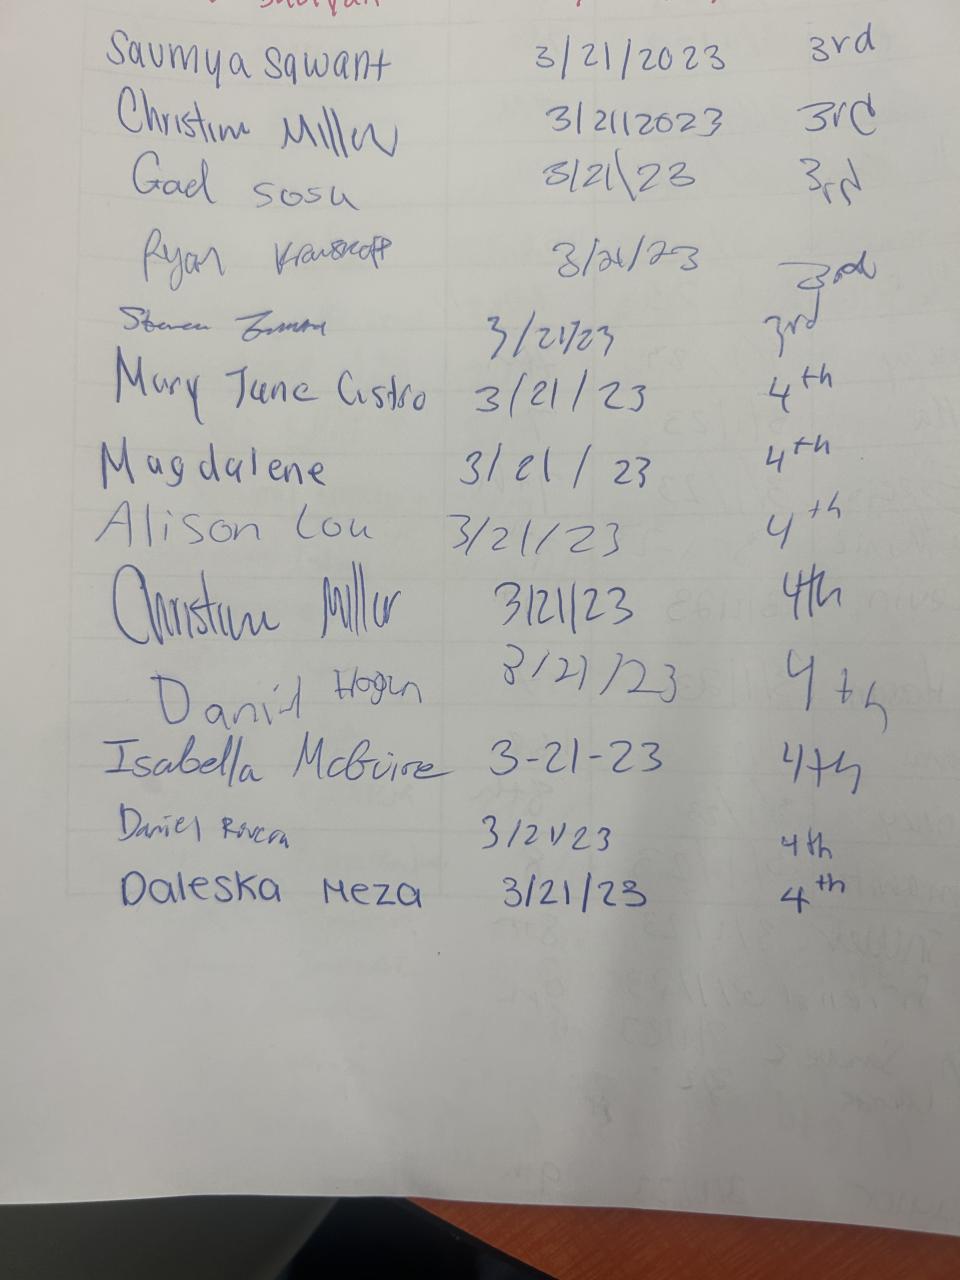 Saumya Sawant 3/21/2023 3rd
Christine Miller 3/21/2023 3rd
Gael Sosa 3/21/23 3rd
Ryan 3/21/23 3rd
Steven 3/21/23 3rd
Mary Jane Castro 3/21/23 4th
Magdalene 3/21/23 4th
Alison Lou 3/21/23 4th
Christine Miller 3/21/23 4th
Daniel Hogan 3/21/23 4th
Isabella McGuire 3-21-23 4th
Daniel Rivera 3/21/23 4th
Daleska Meza 3/21/23 4th